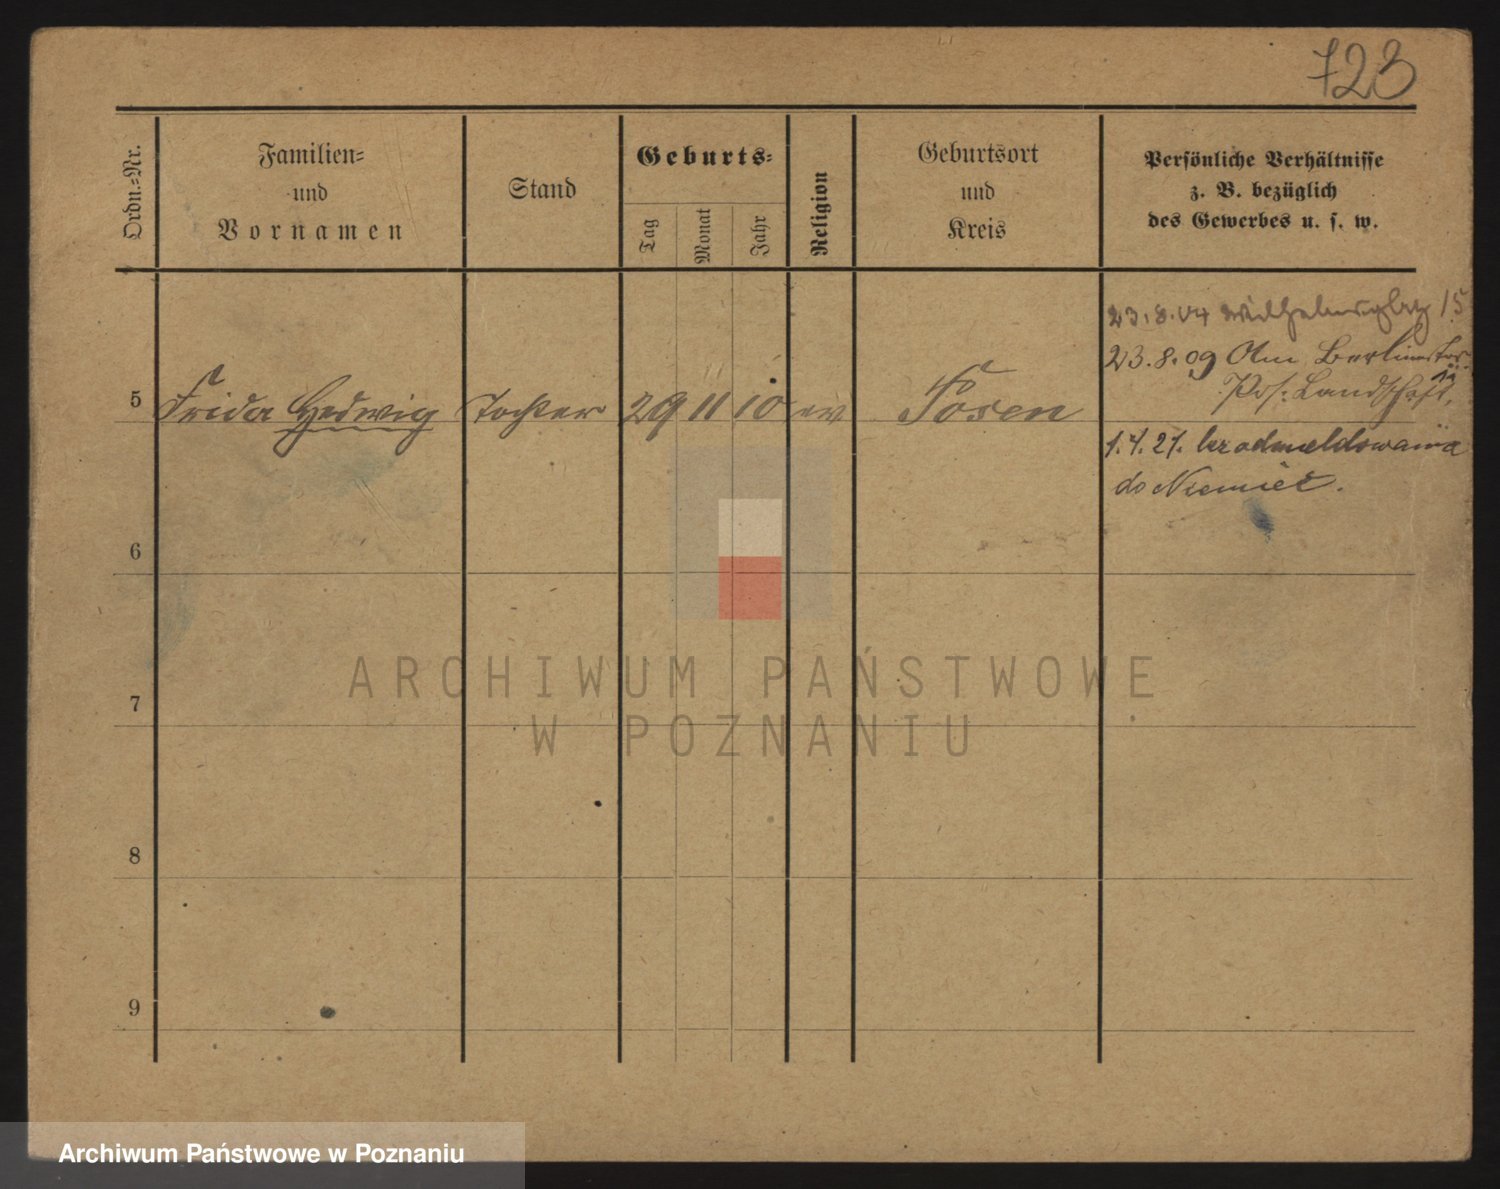 723
Ordn.-Nr.
Familien-
und
Vornamen
Stand
Geburts-
Tag
Monat
Jahr
Religion
Geburtsort
und
Kreis
Persönliche Verhältnisse
z. B. bezüglich
des Gewerbes u. s. w.
23.8.04 Wilhelmsplatz 15
23.8.09 Am Berlinertor
Pos. Landschaft
5 Frida Hedwig Tochter 29 11 10 ev Posen
1.4.21. bez odmeldowania
do Niemiec.
6
7
8
9
ARCHIWUM PAŃSTWOWE
W POZNANIU
Archiwum Państwowe w Poznaniu